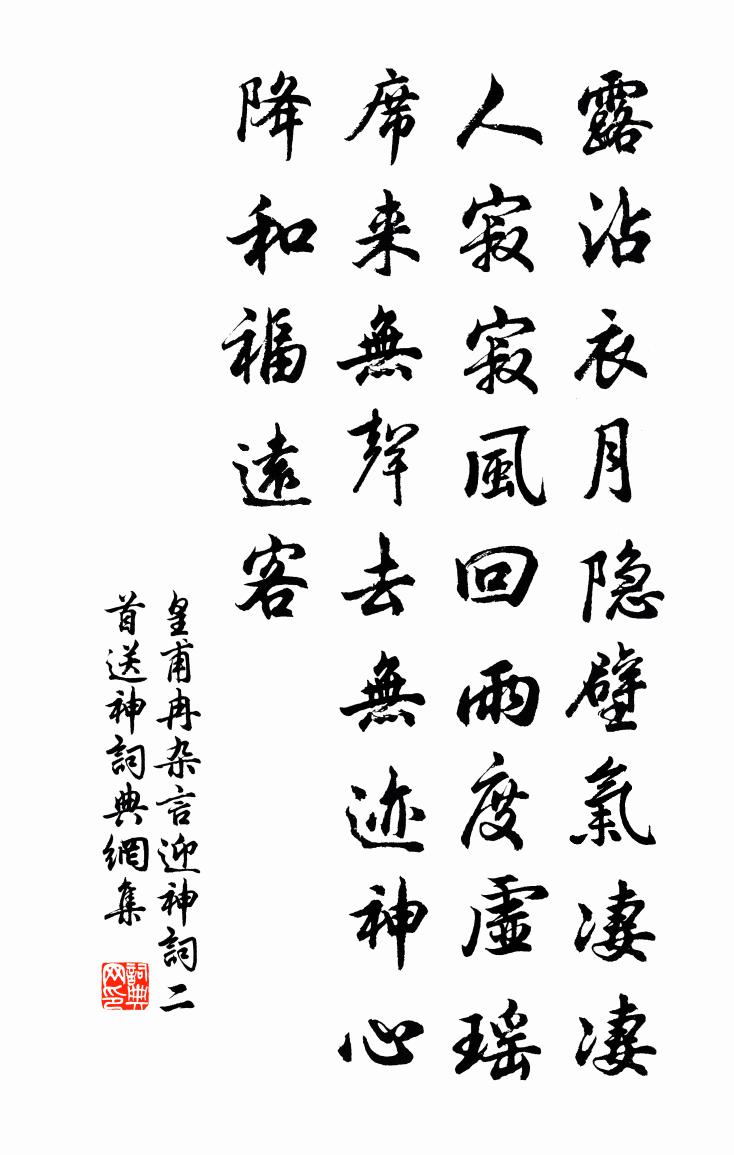 露沾衣月隐壁氣凄凄
人寂寂風回雨度虛瑶
席来無聲去無迹神心
降和福遠客
皇甫冉杂言迎神詞二
首送神詞典網集
詞典网印